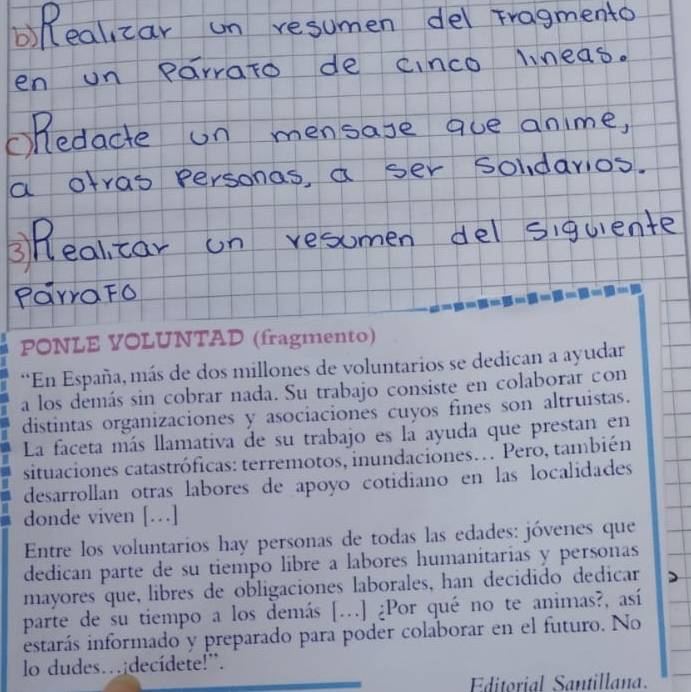 b) Realizar un resumen del Fragmento
en un párrafo de cinco líneas.
c) Redacte un mensaje que anime,
a otras personas, a ser solidarios.
3) Realizar un resumen del siguiente
párrafo
PONLE VOLUNTAD (fragmento)
“En España, más de dos millones de voluntarios se dedican a ayudar
a los demás sin cobrar nada. Su trabajo consiste en colaborar con
distintas organizaciones y asociaciones cuyos fines son altruistas.
La faceta más llamativa de su trabajo es la ayuda que prestan en
situaciones catastróficas: terremotos, inundaciones... Pero, también
desarrollan otras labores de apoyo cotidiano en las localidades
donde viven [...]
Entre los voluntarios hay personas de todas las edades: jóvenes que
dedican parte de su tiempo libre a labores humanitarias y personas
mayores que, libres de obligaciones laborales, han decidido dedicar
parte de su tiempo a los demás [...] ¿Por qué no te animas?, así
estarás informado y preparado para poder colaborar en el futuro. No
lo dudes...¡decídete!”.
Editorial Santillana.